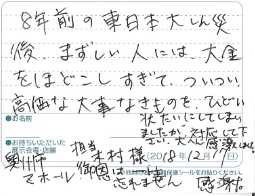 8年前の東日本大しん災
後、まずしい人には、大金
をほどこしすぎて、ついつい
高価な大事なきものを、ひどい
状たいにしてしまい
ましたが、対応して下
さい、
●お名前
●お持ちいただいた
展示会場・店舗
感謝
(2018年12月17日)
奥州市
マホール
担当
木村様
御恩は
忘れません
感謝